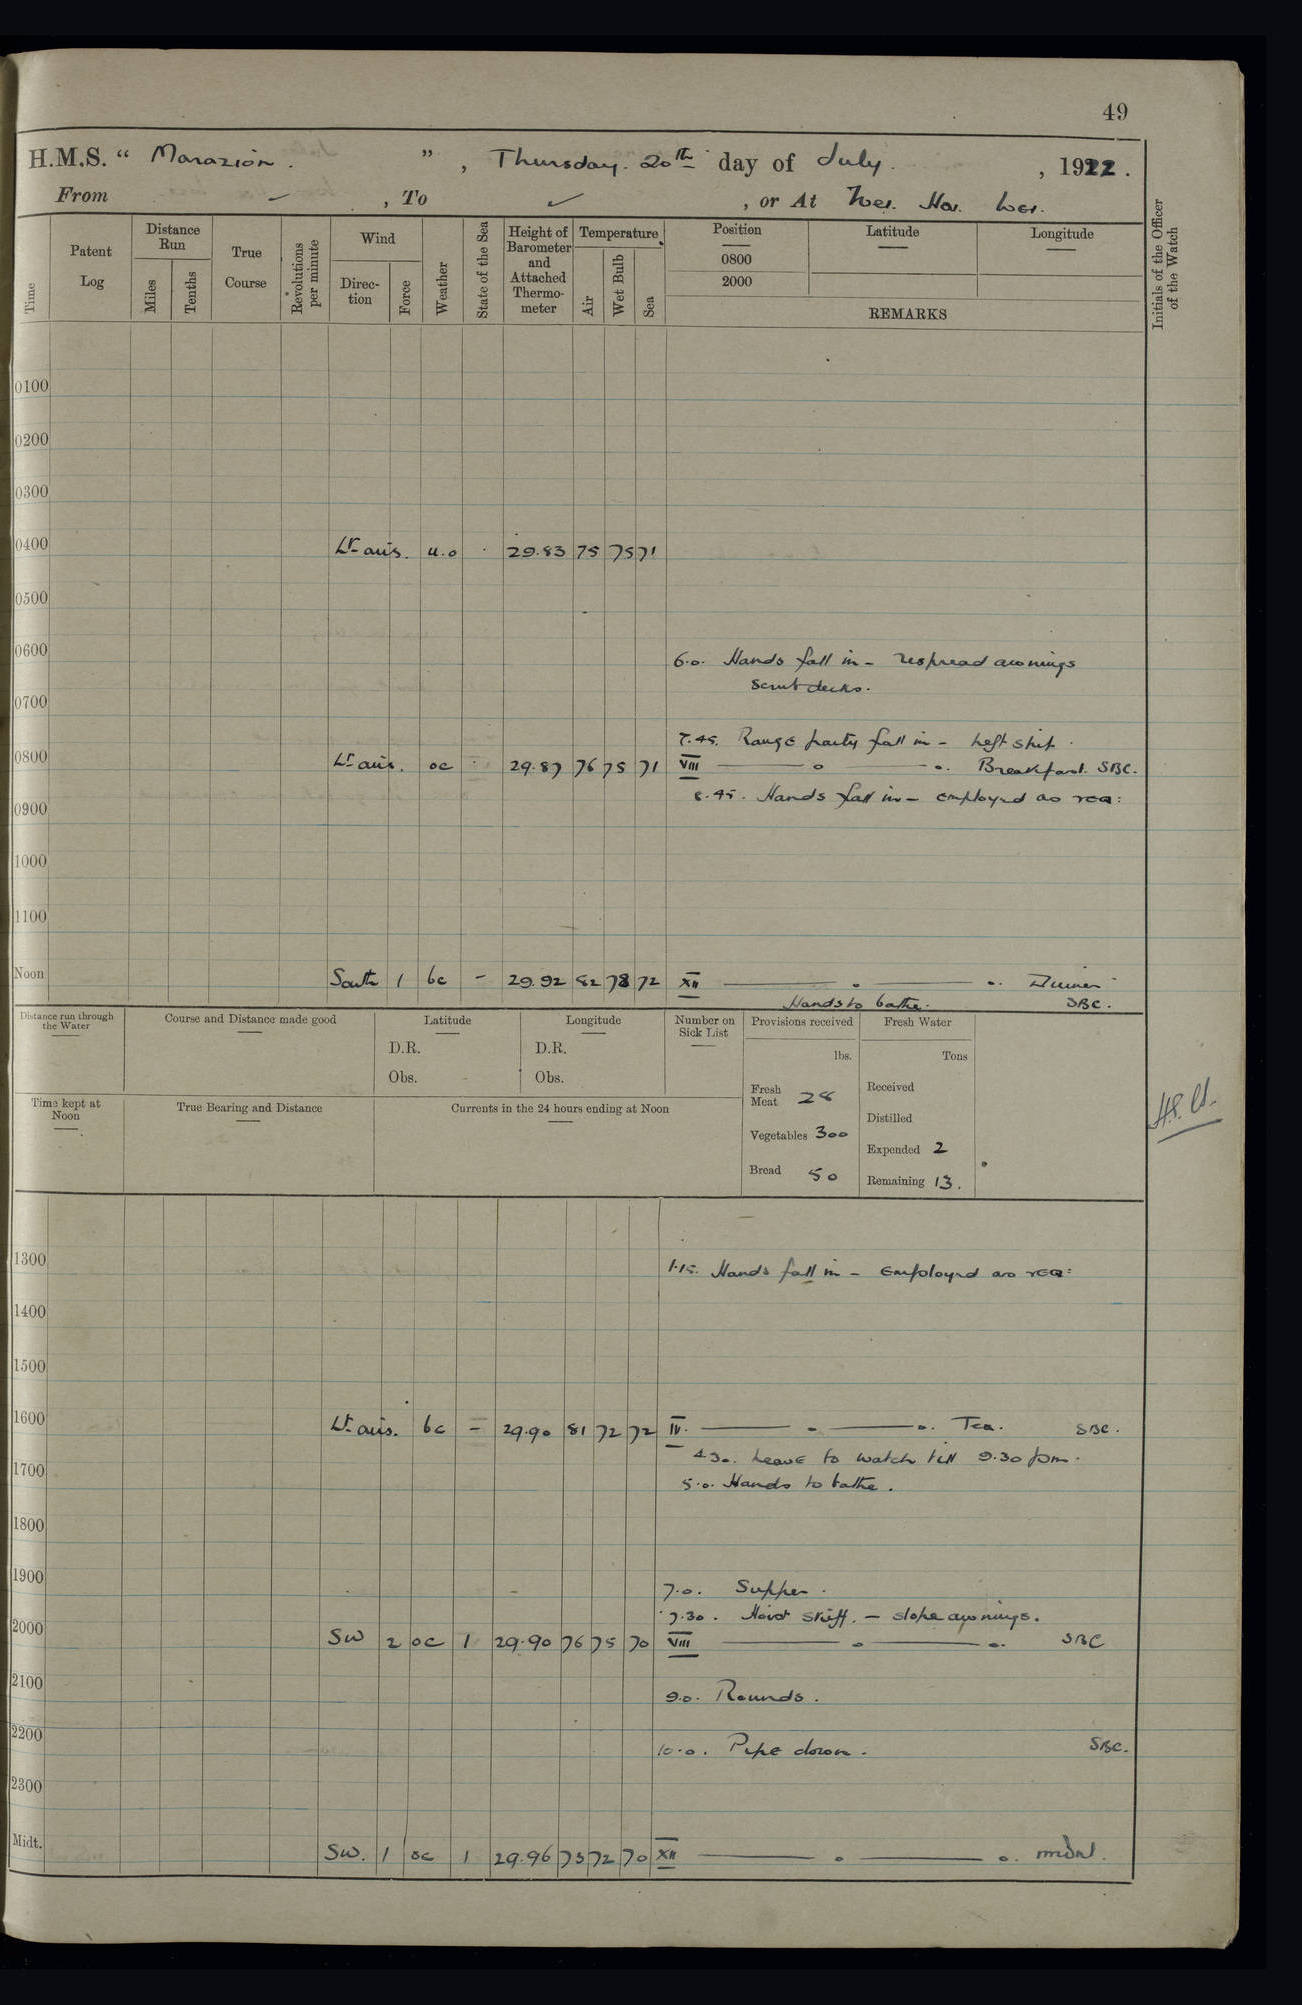 49
H.M.S. “ Marazion. ” , Thursday. 20th day of July. , 1922.
From , To , or At Wei. Hai. Wei.
Time
Patent Log
Distance Run
Miles
Tenths
True Course
Revolutions per minute
Wind
Direction
Force
Weather
State of the Sea
Height of Barometer and Attached Thermometer
Temperature
Air
Wet Bulb
Sea
Position
0800
2000
Latitude
Longitude
REMARKS
Initials of the Officer of the Watch
0100
0200
0300
0400 Lt airs. 29.83 75 75 71
0500
0600
6.0. Hands fall in - respread awnings
scrub decks.
0700
7.45. Range party fall in - left ship.
0800 Lt airs. oc 29.87 76 75 71 VIII Breakfast. SBC.
8.45. Hands fall in - employed as req:
0900
1000
1100
Noon South 1 bc - 29.92 82 78 72 XII Dinner
Hands to bathe. SBC.
Distance run through the Water
Course and Distance made good
Latitude
D.R.
Obs.
Longitude
D.R.
Obs.
Number on Sick List
Provisions received
lbs.
Fresh Meat 28
Vegetables 300
Bread 50
Fresh Water
Tons
Received
Distilled
Expended 2
Remaining 13.
Time kept at Noon
True Bearing and Distance
Currents in the 24 hours ending at Noon
1300
1.15. Hands fall in - Employed as req:
1400
1500
1600 Lt airs. bc - 29.90 81 72 72 IV. Tea. SBC.
4.30. Leave to watch till 9.30 pm.
1700
5.0. Hands to bathe.
1800
1900
7.0. Supper.
7.30. Hoist skiff. - slope awnings.
2000 SW 2 oc 1 29.90 76 75 70 VIII SBC
2100
9.0. Rounds.
2200
10.0. Pipe down. SBC.
2300
Midt. SW. 1 oc 1 29.96 75 72 70 XII